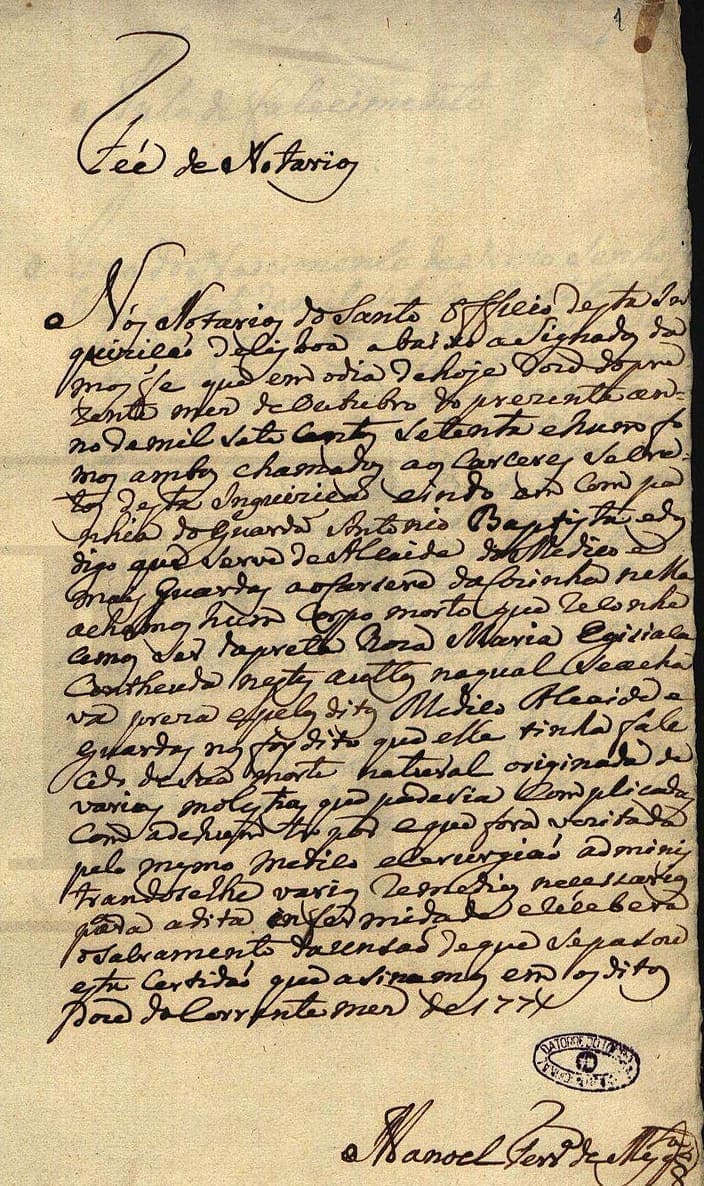 1
Feé de Notarios
Nós Notarios do Santo Officio desta In
quiziçaõ de Lisboa abaixo asignados da
mos fe que em o dia de hoje Doze do pre
zente mez de Outubro do prezente an-
no de mil sete centos setenta e hum fo
mos ambos chamados aos Carceres Secre-
tos desta Inquiziçaõ e indo em Compa
nhia do Guarda Antonio Baptista e dos
digo que serve de Alcaide do Medico e
mais Guardas ao Carsere da Cozinha nelle
achamos hum Corpo morto que Reconhe
cemos ser da preta Roza Maria Egisiaca
Contheuda nestes auttos na qual se acha
va preza e pelos ditos Medico Alcaide e
Guardas nos foy dito que ella tinha fale
cido de sua morte natural originada de
varias molestias que padesia Complicadas
pelo mesmo Medico e cirurgiaõ adminis
trandoselhe varios Remedios necessarios
para a dita infermidade e recebera
o sacramento da unsaõ de que se pasou
esta Certidaõ que asinamos em os ditos
doze do Corrente mez de 1771
DA TORRE DO TOMBO
Manoel Ferrª de Mesqta